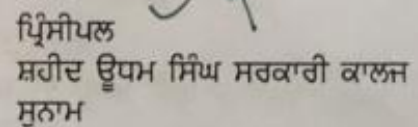 ਪ੍ਰਿੰਸੀਪਲ
ਸ਼ਹੀਦ ਊਧਮ ਸਿੰਘ ਸਰਕਾਰੀ ਕਾਲਜ
ਸੁਨਾਮ